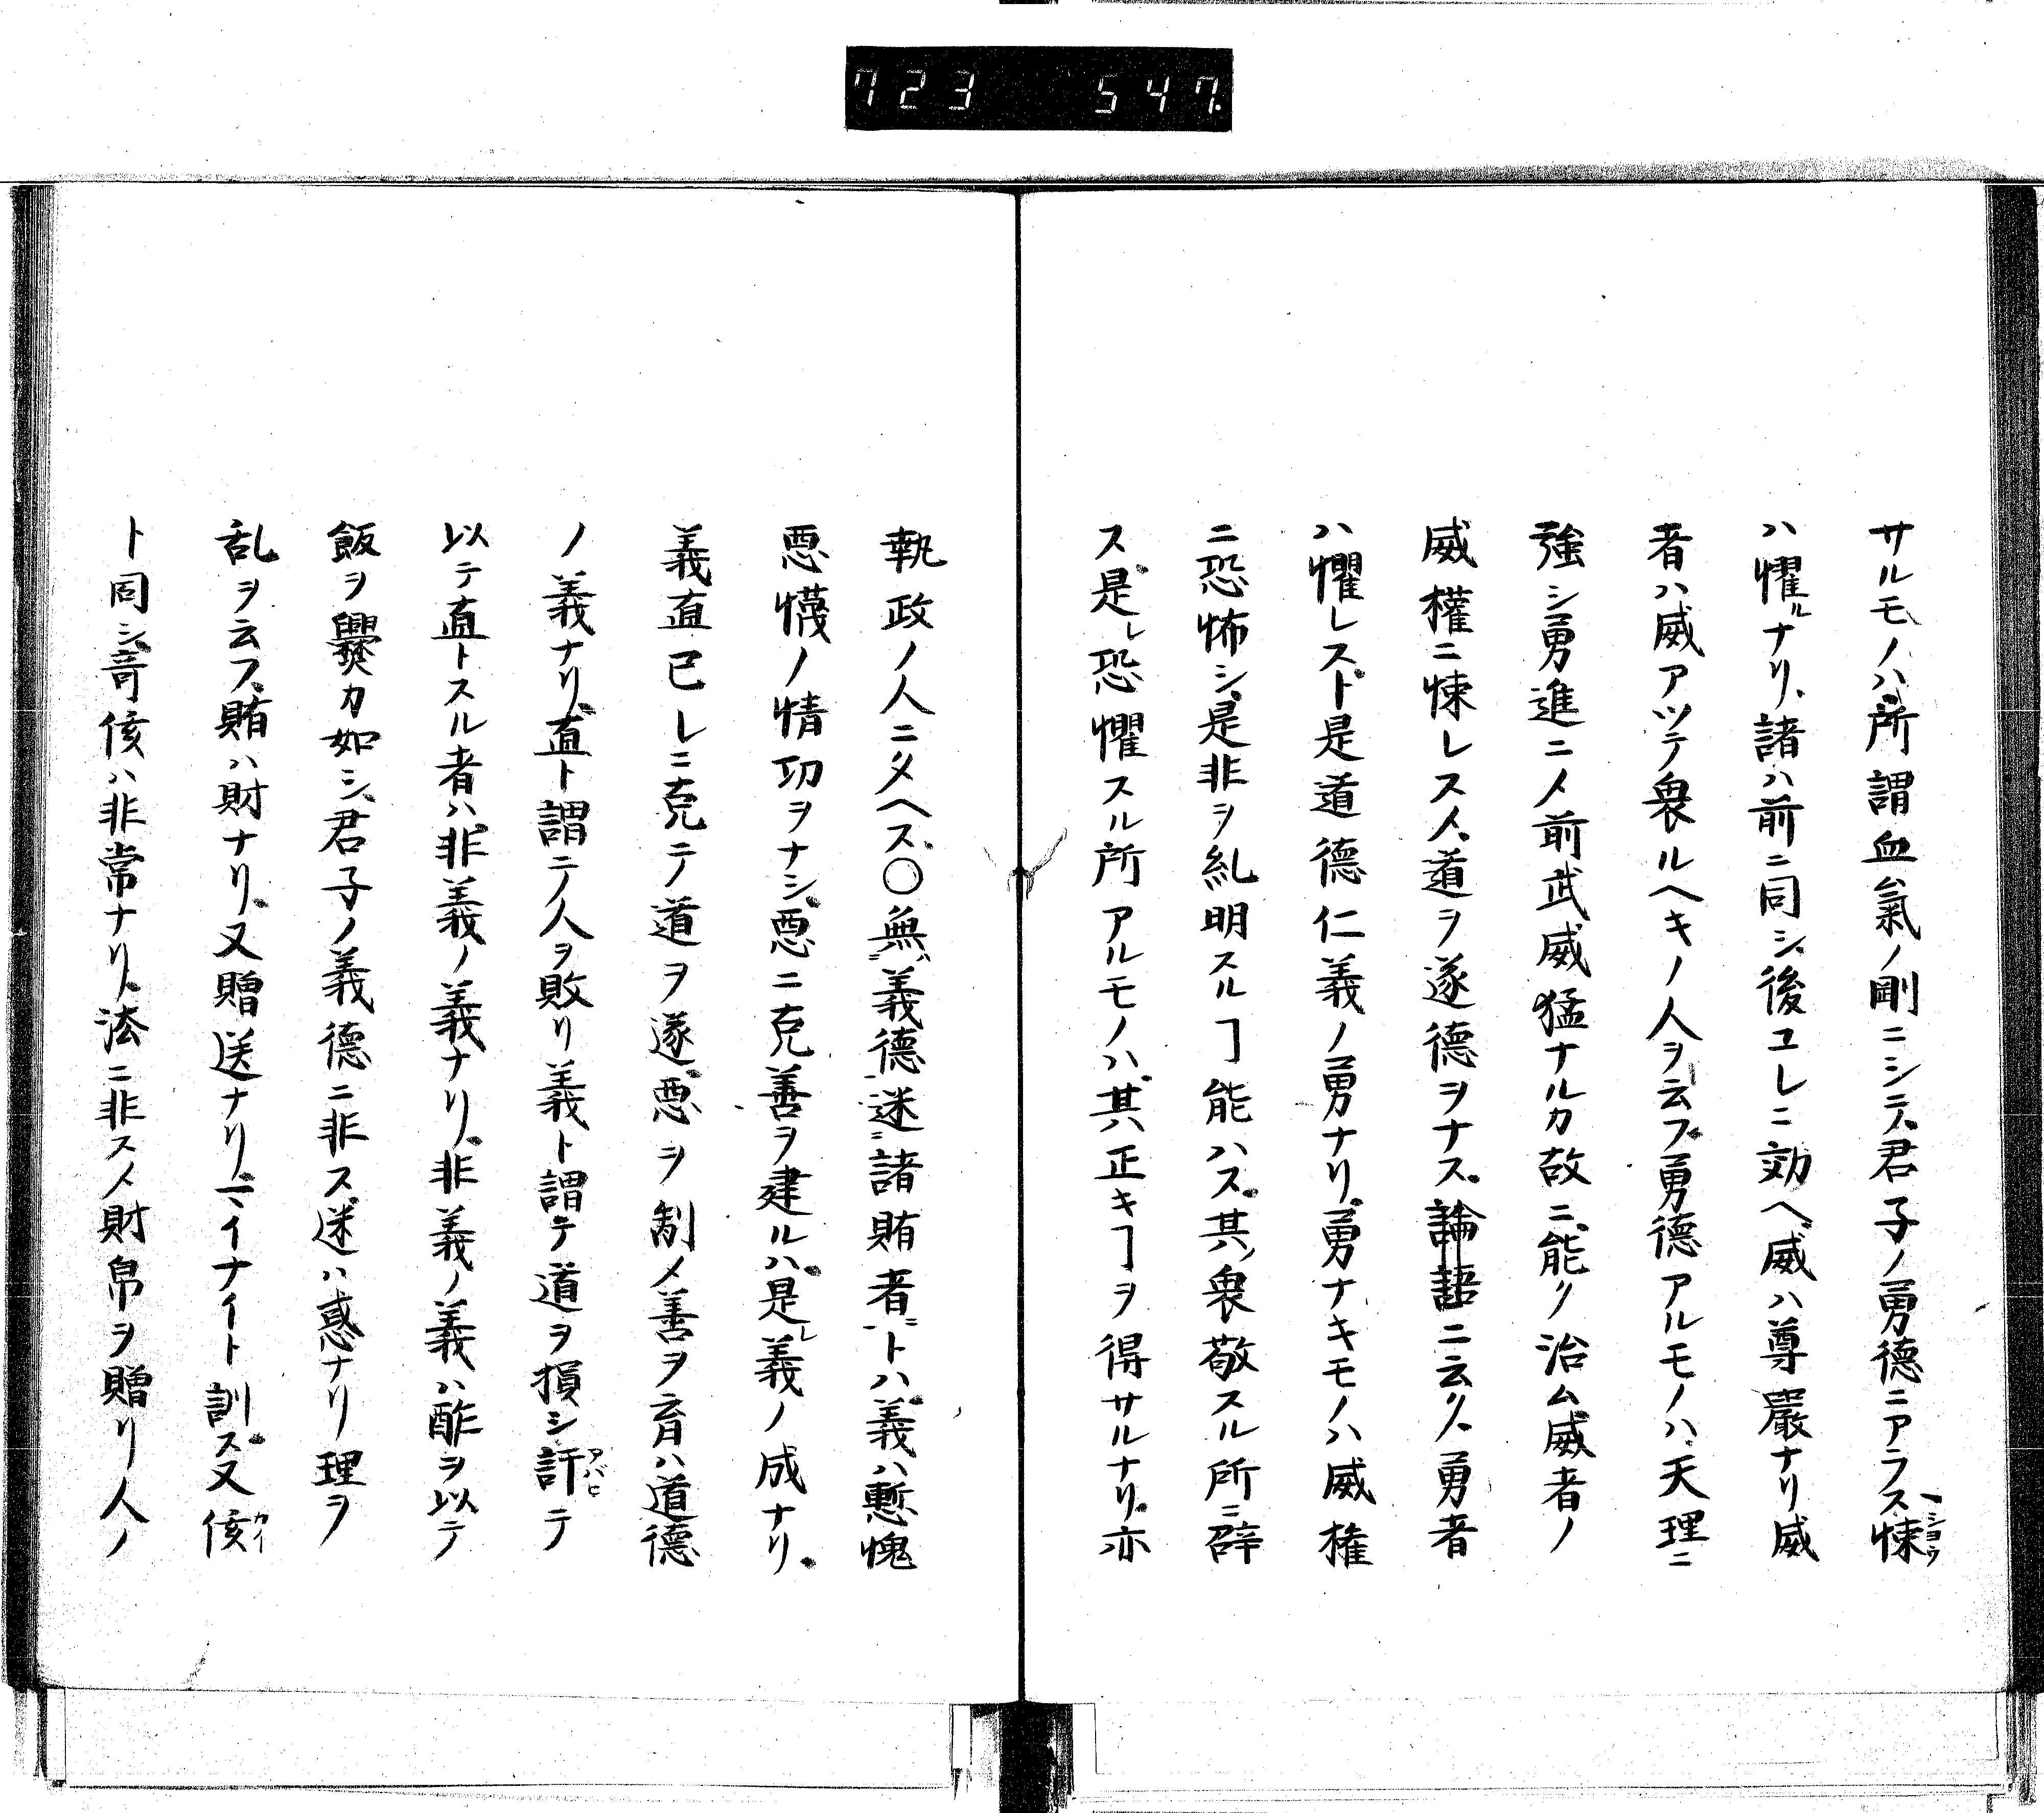 723 547.
サルモノハ、所謂血氣ノ剛ニシテ、君子ノ勇德ニアラス、悚ショウ
ハ懼ルナリ、諸ハ前ニ同シ、後ユレニ効ヘ、威ハ尊嚴ナリ威
者ハ威アツテ衆ルヘキノ人ヲ云フ、勇德アルモノハ、天理ニ
強シ勇進ニメ前武威猛ナルカ故ニ、能ク治ム、威者ノ
威權ニ悚レス、人道ヲ遂德ヲナス、論語ニ云ク、勇者
ハ懼レスト是道德仁義ノ勇ナリ、勇ナキモノハ威權
ニ恐怖シ、是非ヲ糺明スルヿ能ハス、其ノ衆敬スル所ニ辟
ス、是レ恐懼スル所アルモノハ、其ハ正キヿヲ得サルナリ、亦
執政ノ人ニタヘス、〇無義德迷諸賄者トハ、義ハ慙愧
悪懱ノ情切ヲナシ、悪ニ克善ヲ建ルハ、是レ義ノ成ナリ、
義直已レニ克テ道ヲ遂、悪ヲ制メ善ヲ育ハ道德
ノ義ナリ、直ト謂ニノ人ヲ敗リ義ト謂テ道ヲ損シ訐アバヒテ
以テ直トスル者ハ、非義ノ義ナリ、非義ノ義ハ酢ヲ以テ
飯ヲ爨カ如シ、君子ノ義德ニ非ス、迷ハ惑ナリ理ヲ
乱ヲ云フ、賄ハ財ナリ、又贈送ナリ、一ニマイナイト訓ス、又侅カイ
ト同シ、奇侅ハ非常ナリト、法ニ非スメ財帛ヲ贈リ人ノ